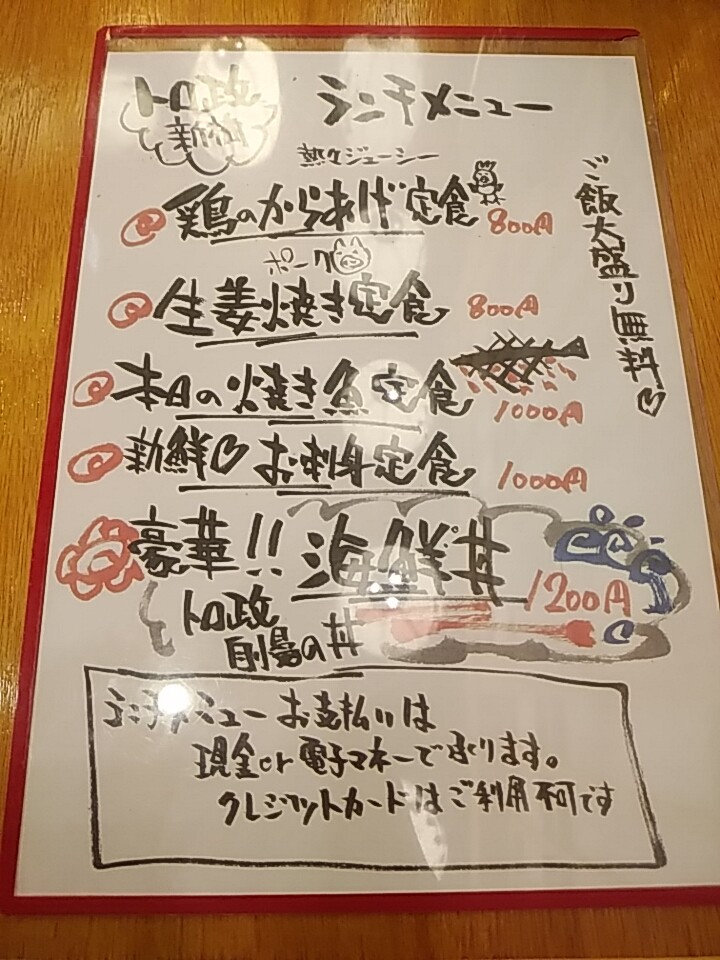 トロ政
新橋
ランチメニュー
熱々ジューシー
鶏のからあげ定食 800円
ポーク
生姜焼き定食 800円
本日の焼き魚定食 1000円
新鮮♡お刺身定食 1000円
豪華!!海鮮丼 1200円
トロ政
自慢の丼
ご飯大盛り無料♡
ランチメニューお支払いは
現金or電子マネーで承ります。
クレジットカードはご利用不可です